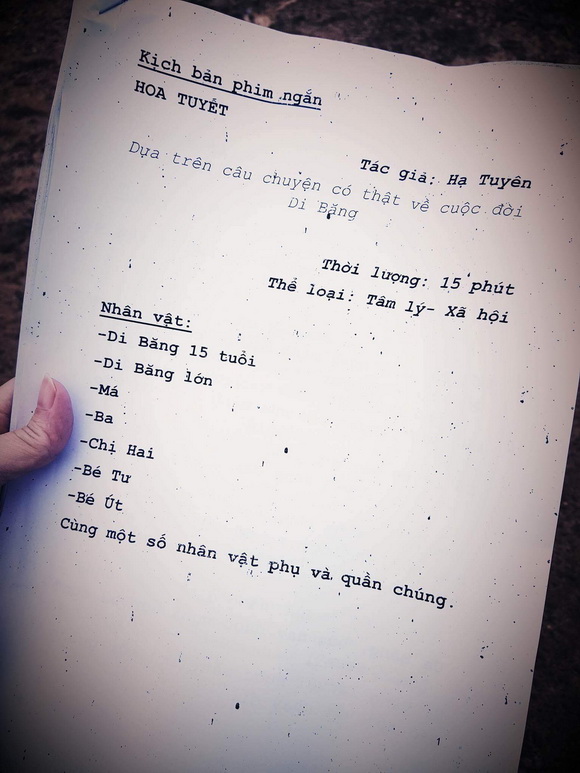 Kịch bản phim ngắn
HOA TUYẾT
Tác giả: Hạ Tuyên
Dựa trên câu chuyện có thật về cuộc đời
Di Băng
Thời lượng: 15 phút
Thể loại: Tâm lý- Xã hội
Nhân vật:
-Di Băng 15 tuổi
-Di Băng lớn
-Má
-Ba
-Chị Hai
-Bé Tư
-Bé Út
Cùng một số nhân vật phụ và quần chúng.